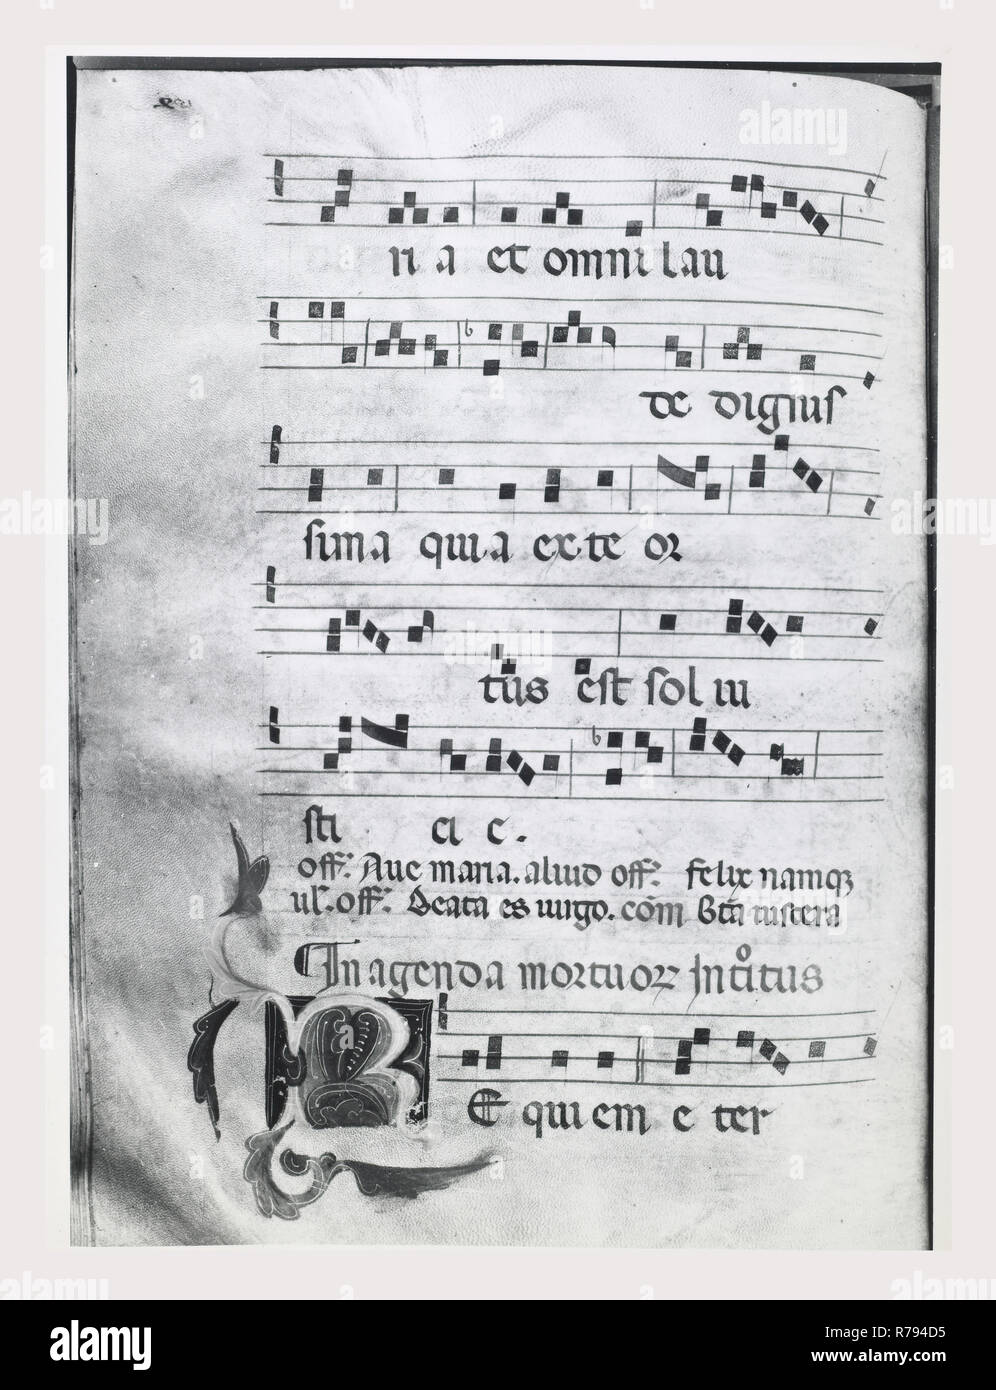 ri a et omni lau
de digius
sima qui.a ex te or
tus est sol iu
sti ci e.
off. Aue maria. aliud off. felix namq
ul. off. Beata es uirgo. com Bta uiscera
In agenda mortuor Introitus
E qui em e ter
alamy
Image ID: R794D5
www.alamy.com